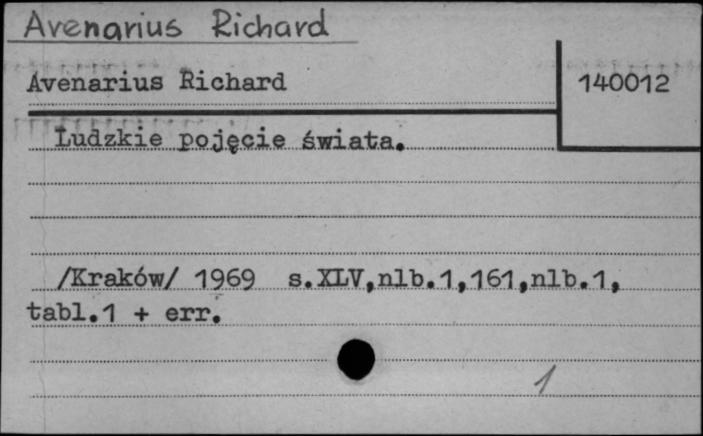 Avenarius Richard
Avenarius Richard 140012
Ludzkie pojęcie świata.
/Kraków/ 1969 s.XLV,nlb.1,161,nlb.1,
tabl.1 + err.
1